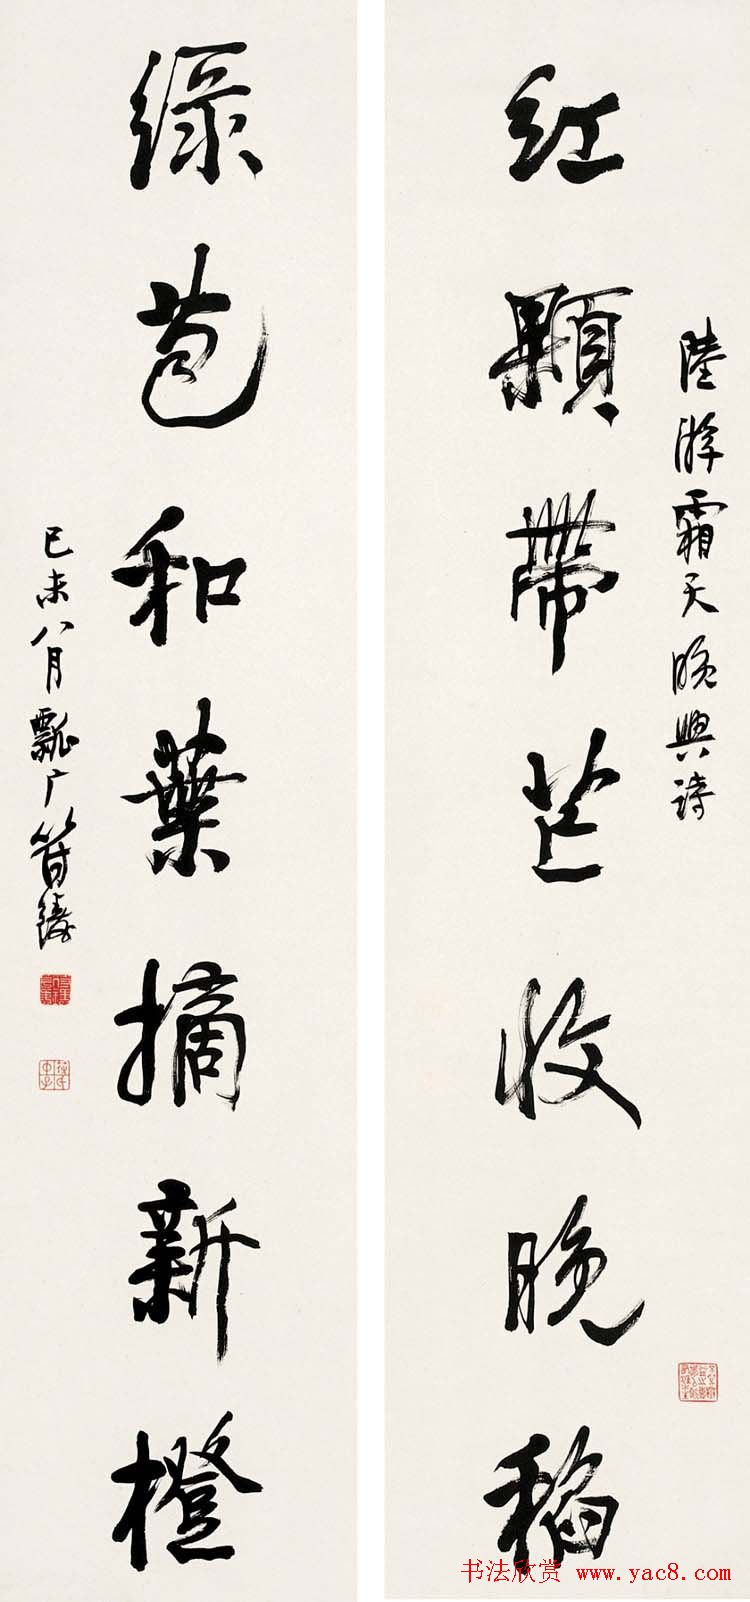 陸游霜天晚興詩
紅顆帶芒收晚稻
綠苞和葉摘新橙
己未八月瓢广
书法欣赏 www.yac8.com